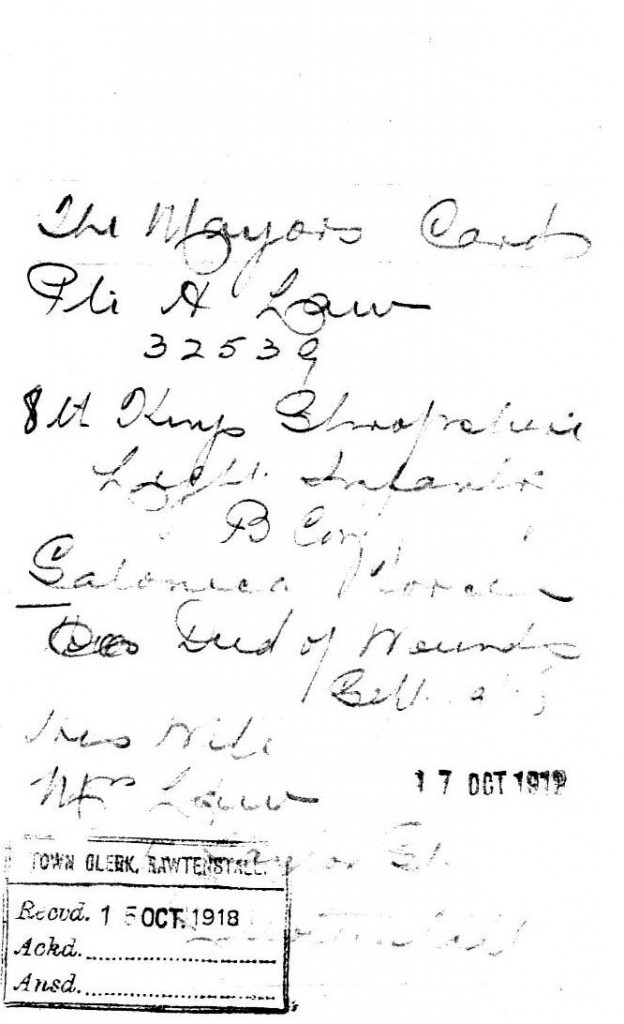 The Mayors Cards
Pte A Law
32539
8th Kings Shropshire
Light Infantry
B Coy
Salonica Force
Died of Wounds
his Wife
Mrs Law
17 OCT 1918
St.
TOWN CLERK, RAWTENSTALL.
Recvd. 15 OCT. 1918
Ackd.
Ansd.